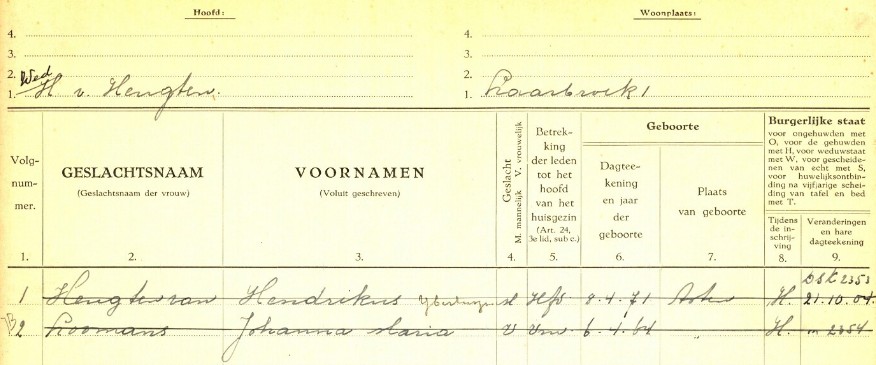 Hoofd:
Woonplaats:
4.
4.
3.
3.
2.
2.
Wed
1. H v. Hengten.
1. Laarbroek 1
Volg-
num-
mer.
GESLACHTSNAAM
(Geslachtsnaam der vrouw)
VOORNAMEN
(Voluit geschreven)
Geslacht
M. mannelijk V. vrouwelijk
Betrek-
king
der leden
tot het
hoofd
van het
huisgezin
(Art. 24,
3e lid, sub c.)
Geboorte
Dagtee-
kening
en jaar
der
geboorte
Plaats
van geboorte
Burgerlijke staat
voor ongehuwden met
O, voor de gehuwden
met H, voor weduwstaat
met W, voor gescheide-
nen van echt met S,
voor huwelijksontbin-
ding na vijfjarige schei-
ding van tafel en bed
met T.
Tijdens
de in-
schrij-
ving
Veranderingen
en hare
dagteekening
1. 2. 3. 4. 5. 6. 7. 8. 9.
DSK 2353
1 Hengten van Hendrikus M Hfd 8.4.71 Asten H. 21.10.04.
B2 Loomans Johanna Maria V Vrw. 6.4.64 H. " 2354